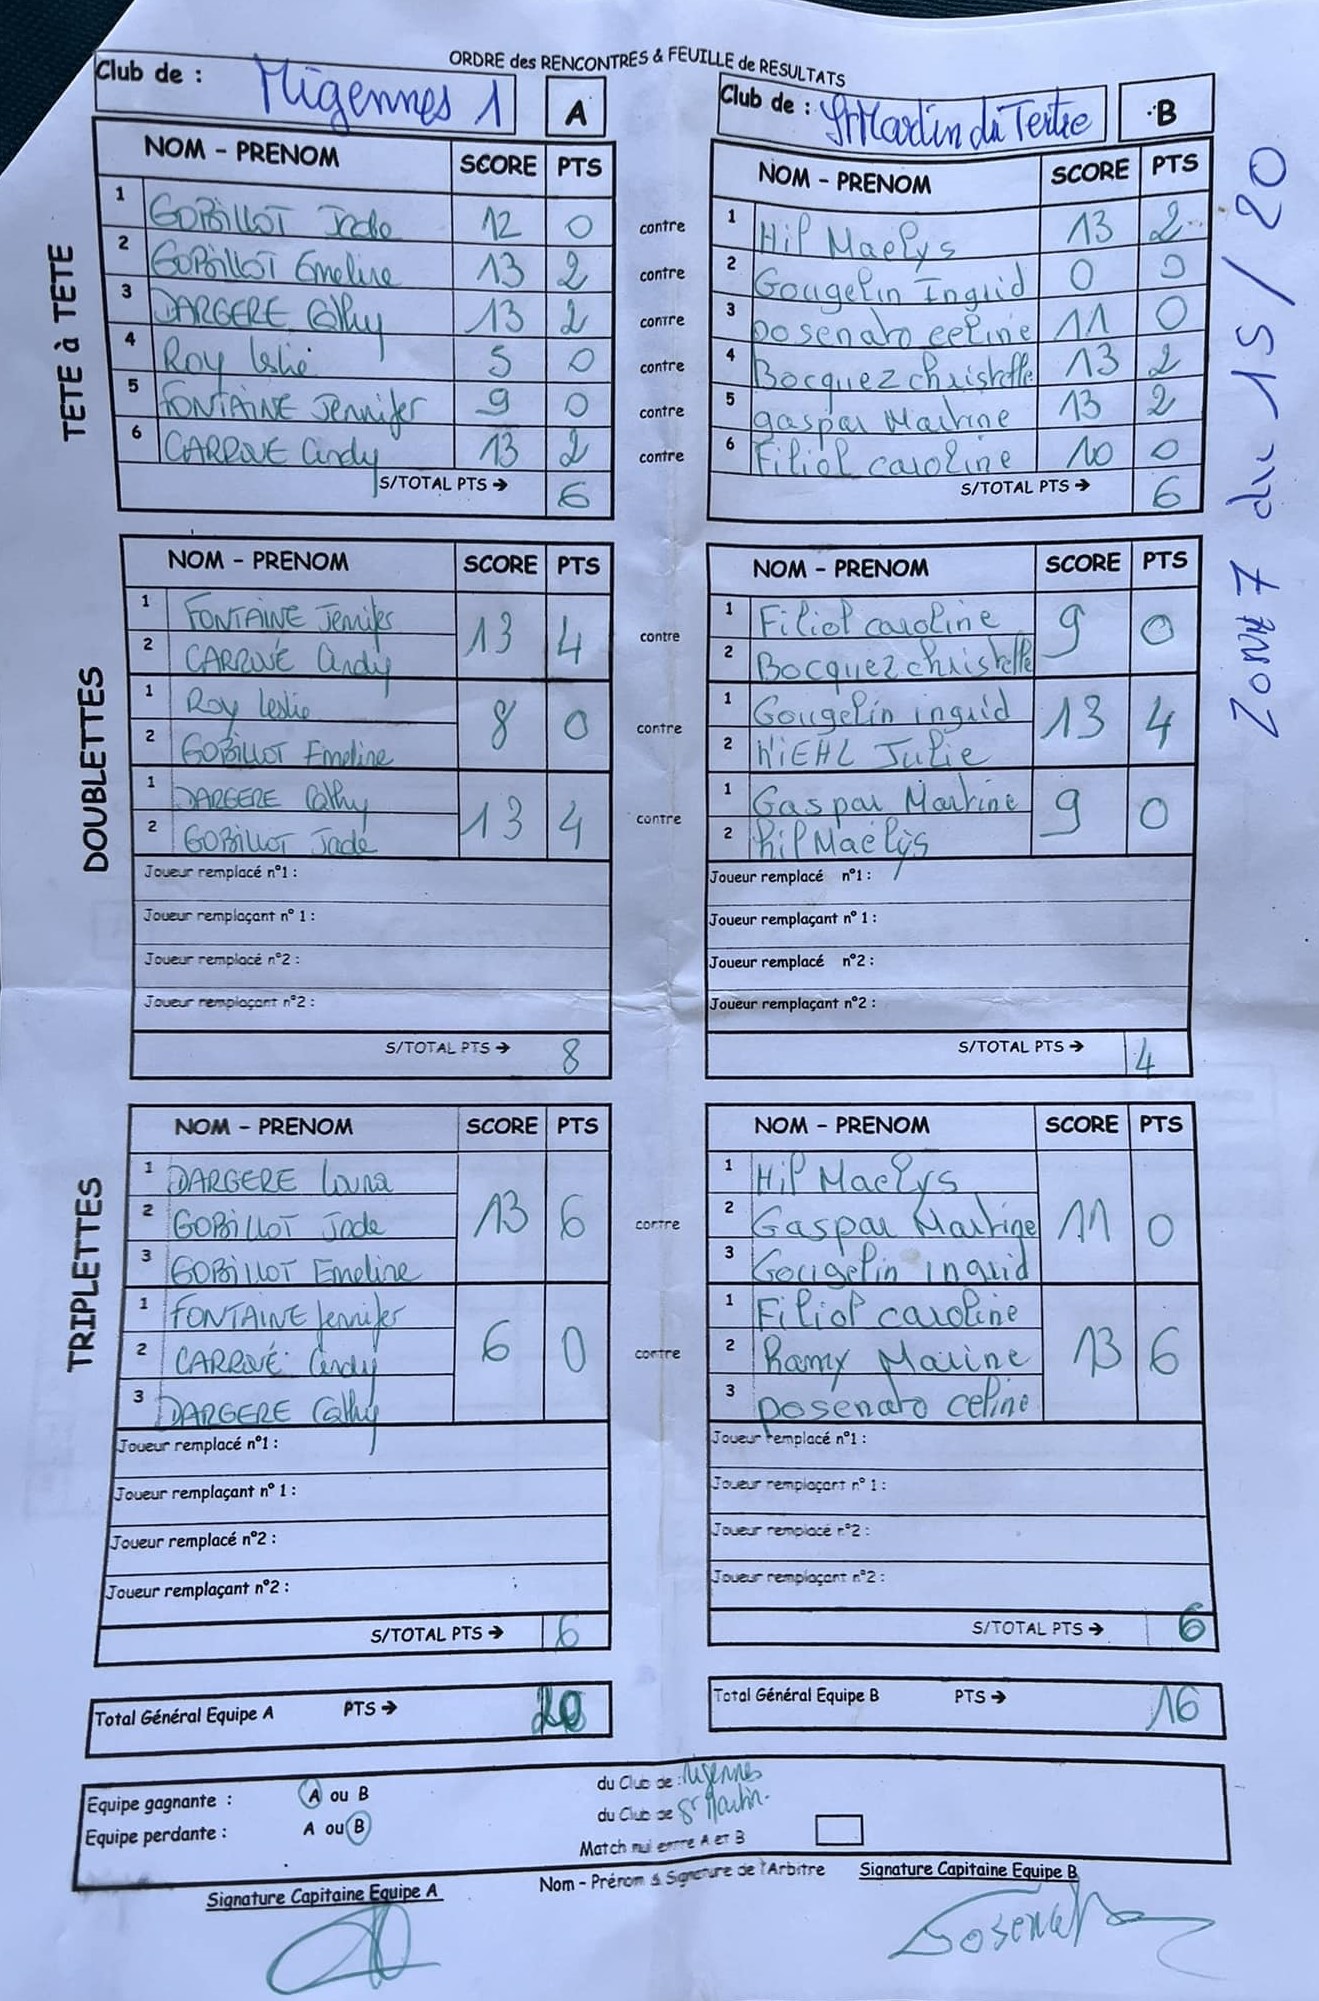 ORDRE des RENCONTRES & FEUILLE de RESULTATS
Club de : Migennes 1 A
Club de : St Martin du Tertre B
NOM - PRENOM SCORE PTS NOM - PRENOM SCORE PTS
TETE à TETE
1 GOBILLOT Jade 12 0 contre 1 Hil Maelys 13 2
2 GOBILLOT Emeline 13 2 contre 2 Gougelin Ingrid 0 0
3 DARGERE Cathy 13 2 contre 3 Dosenato celine 11 0
4 Roy leslie 5 0 contre 4 Bocquez christelle 13 2
5 FONTAINE Jennifer 9 0 contre 5 gaspar Martine 13 2
6 CARROUÉ Cindy 13 2 contre 6 Filiol caroline 10 0
S/TOTAL PTS → 6 S/TOTAL PTS → 6
ZONE 7 du 15/20
DOUBLETTES
NOM - PRENOM SCORE PTS NOM - PRENOM SCORE PTS
1 FONTAINE Jennifer 13 4 contre 1 Filiol caroline 9 0
2 CARROUÉ Cindy 2 Bocquez christelle
1 Roy leslie 8 0 contre 1 Gougelin ingrid 13 4
2 GOBILLOT Emeline 2 Julie
1 DARGERE Cathy 13 4 contre 1 Gaspar Martine 9 0
2 GOBILLOT Jade 2 hil Maëlys
Joueur remplacé n°1 : Joueur remplacé n°1 :
Joueur remplaçant n° 1 : Joueur remplaçant n° 1 :
Joueur remplacé n°2 : Joueur remplacé n°2 :
Joueur remplaçant n°2 : Joueur remplaçant n°2 :
S/TOTAL PTS → 8 S/TOTAL PTS → 4
TRIPLETTES
NOM - PRENOM SCORE PTS NOM - PRENOM SCORE PTS
1 DARGERE Louna 13 6 contre 1 Hil Maelys 11 0
2 GOBILLOT Jade 2 Gaspar Martine
3 GOBILLOT Emeline 3 Gougelin ingrid
1 FONTAINE Jennifer 6 0 contre 1 Filiol caroline 13 6
2 CARROUÉ Cindy 2 Ramy Marine
3 DARGERE Cathy 3 Dosenato celine
Joueur remplacé n°1 : Joueur remplacé n°1 :
Joueur remplaçant n° 1 : Joueur remplaçant n° 1 :
Joueur remplacé n°2 : Joueur remplacé n°2 :
Joueur remplaçant n°2 : Joueur remplaçant n°2 :
S/TOTAL PTS → 6 S/TOTAL PTS → 6
Total Général Equipe A PTS → 20 Total Général Equipe B PTS → 16
Equipe gagnante : A ou B du Club de : Migennes
Equipe perdante : A ou B du Club de St Martin
Match nul entre A et B
Signature Capitaine Equipe A Nom - Prénom & Signature de l'Arbitre Signature Capitaine Equipe B